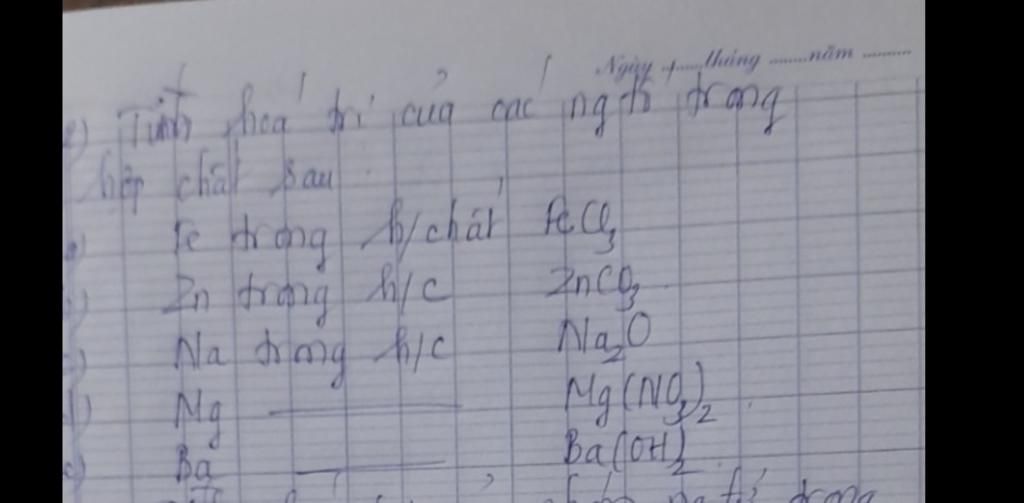 Ngày ........ tháng ........ năm ........
2) Tính hoá trị của các ng tố trong
hợp chất sau
a) Fe trong h/chất FeCl₃
b) Zn trong h/c ZnCO₃
c) Na trong h/c Na₂O
d) Mg ——— Mg(NO₃)₂
e) Ba ——— Ba(OH)₂